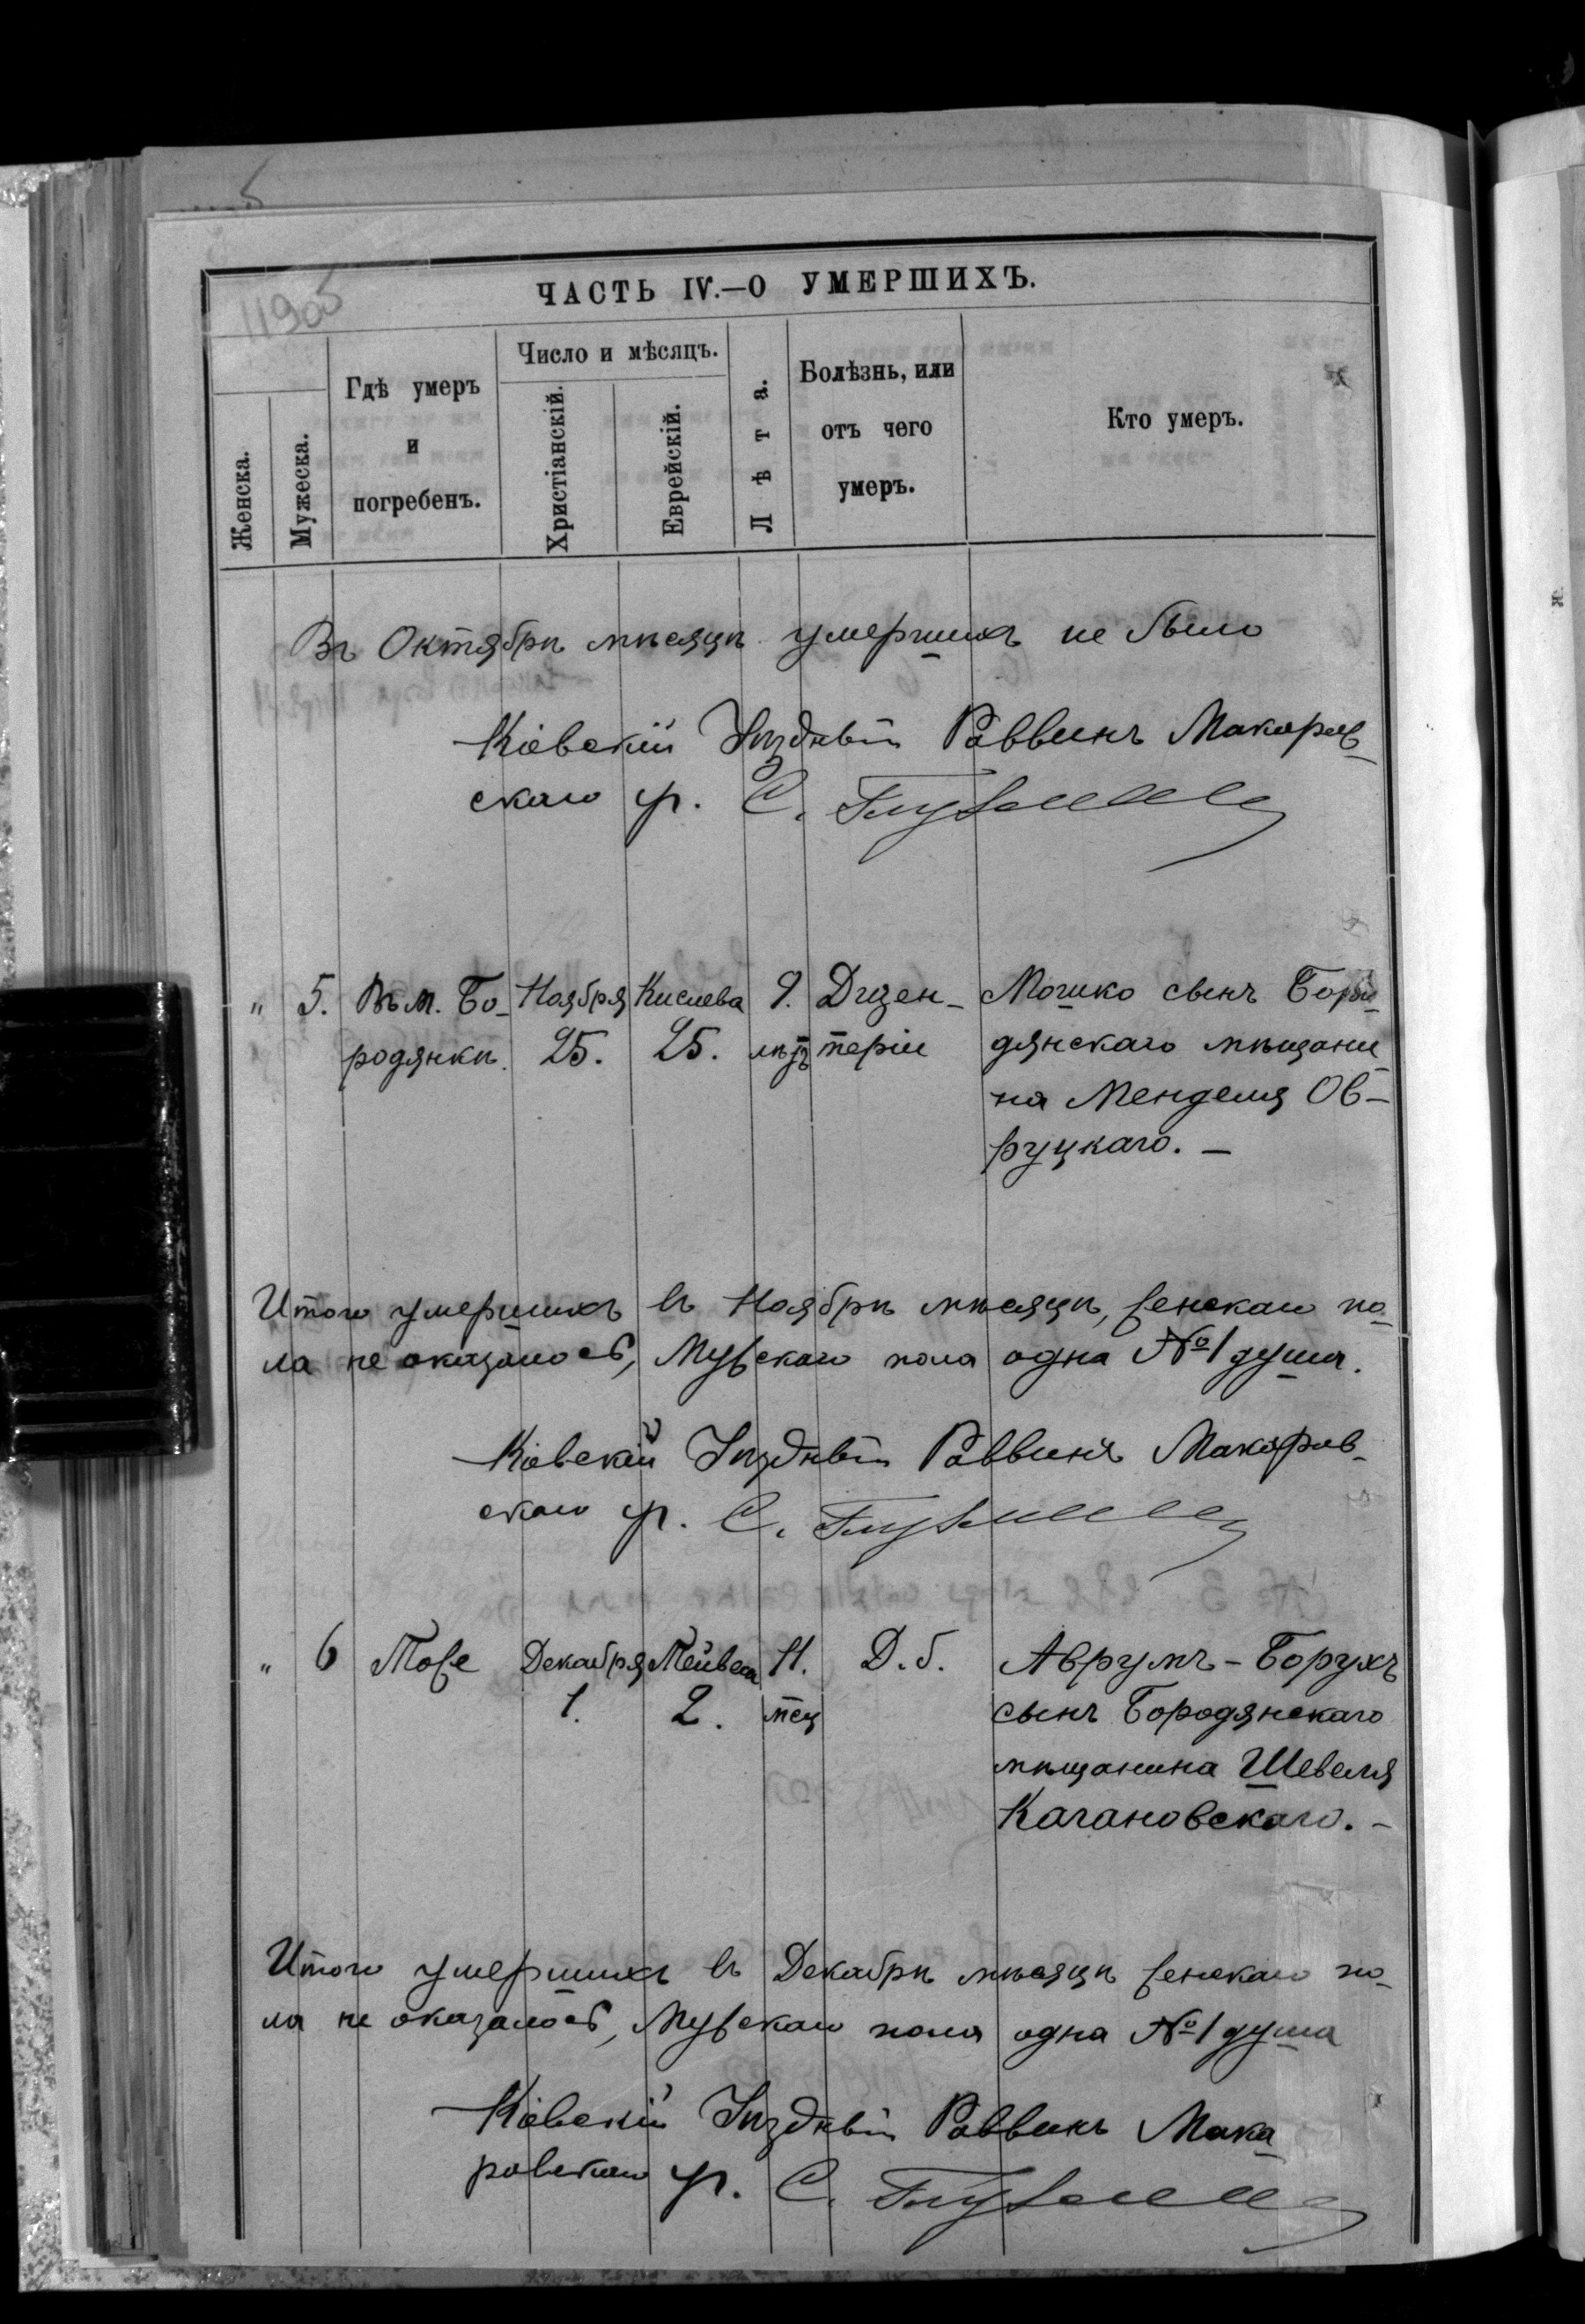 11905
ЧАСТЬ IV.—О УМЕРШИХЪ.
Женска.
Мужеска.
Гдѣ умеръ
и
погребенъ.
Число и мѣсяцъ.
Христіанскій.
Еврейскій.
Лѣта.
Болѣзнь, или
отъ чего
умеръ.
Кто умеръ.
Въ Октябрѣ мѣсяцѣ умершихъ не было
Кіевскій Уѣздный Раввинъ Макаров-
скаго ур. С.
" 5. Въ м. Бо- Ноября Кислева 9. Дизен- Мошко сынъ Боро-
родянкѣ. 25. 25. лѣтъ теріи дянскаго мѣщани-
на Менделя Ов-
руцкаго. —
Итого умершихъ въ Ноябрѣ мѣсяцѣ, женскаго по-
ла не оказалось, Мужскаго пола одна № 1 душа.
Кіевскій Уѣздный Раввинъ Макаров-
скаго ур. С.
" 6 Тоже Декабря Тейвеса 11. Д. б. Аврумъ-Борухъ
1. 2. мѣс сынъ Бородянскаго
мѣщанина Шевеля
Кагановскаго. —
Итого умершихъ въ Декабрѣ мѣсяцѣ женскаго по-
ла не оказалось, Мужскаго пола одна № 1 душа
Кіевскій Уѣздный Раввинъ Мака-
ровскаго ур. С.